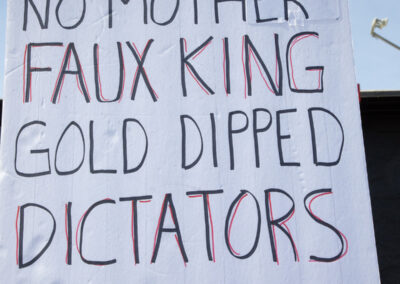 NO MOTHER
FAUX KING
GOLD DIPPED
DICTATORS